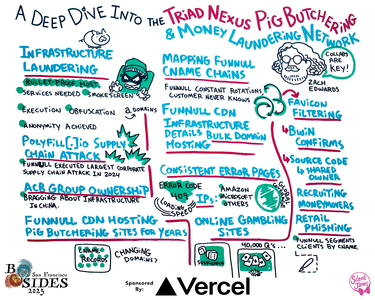 A DEEP DIVE INTO THE TRIAD NEXUS PIG BUTCHERING
& MONEY LAUNDERING NETWORK
INFRASTRUCTURE
LAUNDERING
BULLET PROOF HOST
SERVICES NEEDED SMOKESCREEN
EXECUTION OBFUSCATION
DOMAINS
ANONYMITY ACHIEVED
POLYFILL[.]IO SUPPLY
CHAIN ATTACK
FUNNULL EXECUTED LARGEST CORPORATE
SUPPLY CHAIN ATTACK IN 2024
ACB GROUP OWNERSHIP
BRAGGING ABOUT INFRASTRUCTURE
IN CHINA.
FUNNULL CDN HOSTING
PIG BUTCHERING SITES FOR YEARS
CNAME
RECORDS
CHANGING
DOMAINS?
MAPPING FUNNULL
CNAME CHAINS
FUNNULL CONSTANT ROTATIONS
CUSTOMER NEVER KNOWS
FUNNULL CDN
INFRASTRUCTURE
DETAILS BULK DOMAIN
HOSTING
CONSISTENT ERROR PAGES
ERROR CODE
LOADING
SPEED
AMAZON
MICROSOFT
OTHERS
IPS:
GLOBAL
ONLINE GAMBLING
SITES
40,000 Q'S...
COLLABS
ARE
KEY!
ZACH
EDWARDS
FAVICON
FILTERING
BWIN
CONFIRMS
SOURCE CODE
SHARED
OWNER
RECRUITING
MONEYMOVERS
RETAIL
PHISHING
FUNNULL SEGMENTS
CLIENTS BY CNAME.
BSIDES
San Francisco
2025
Sponsored
By:
Vercel